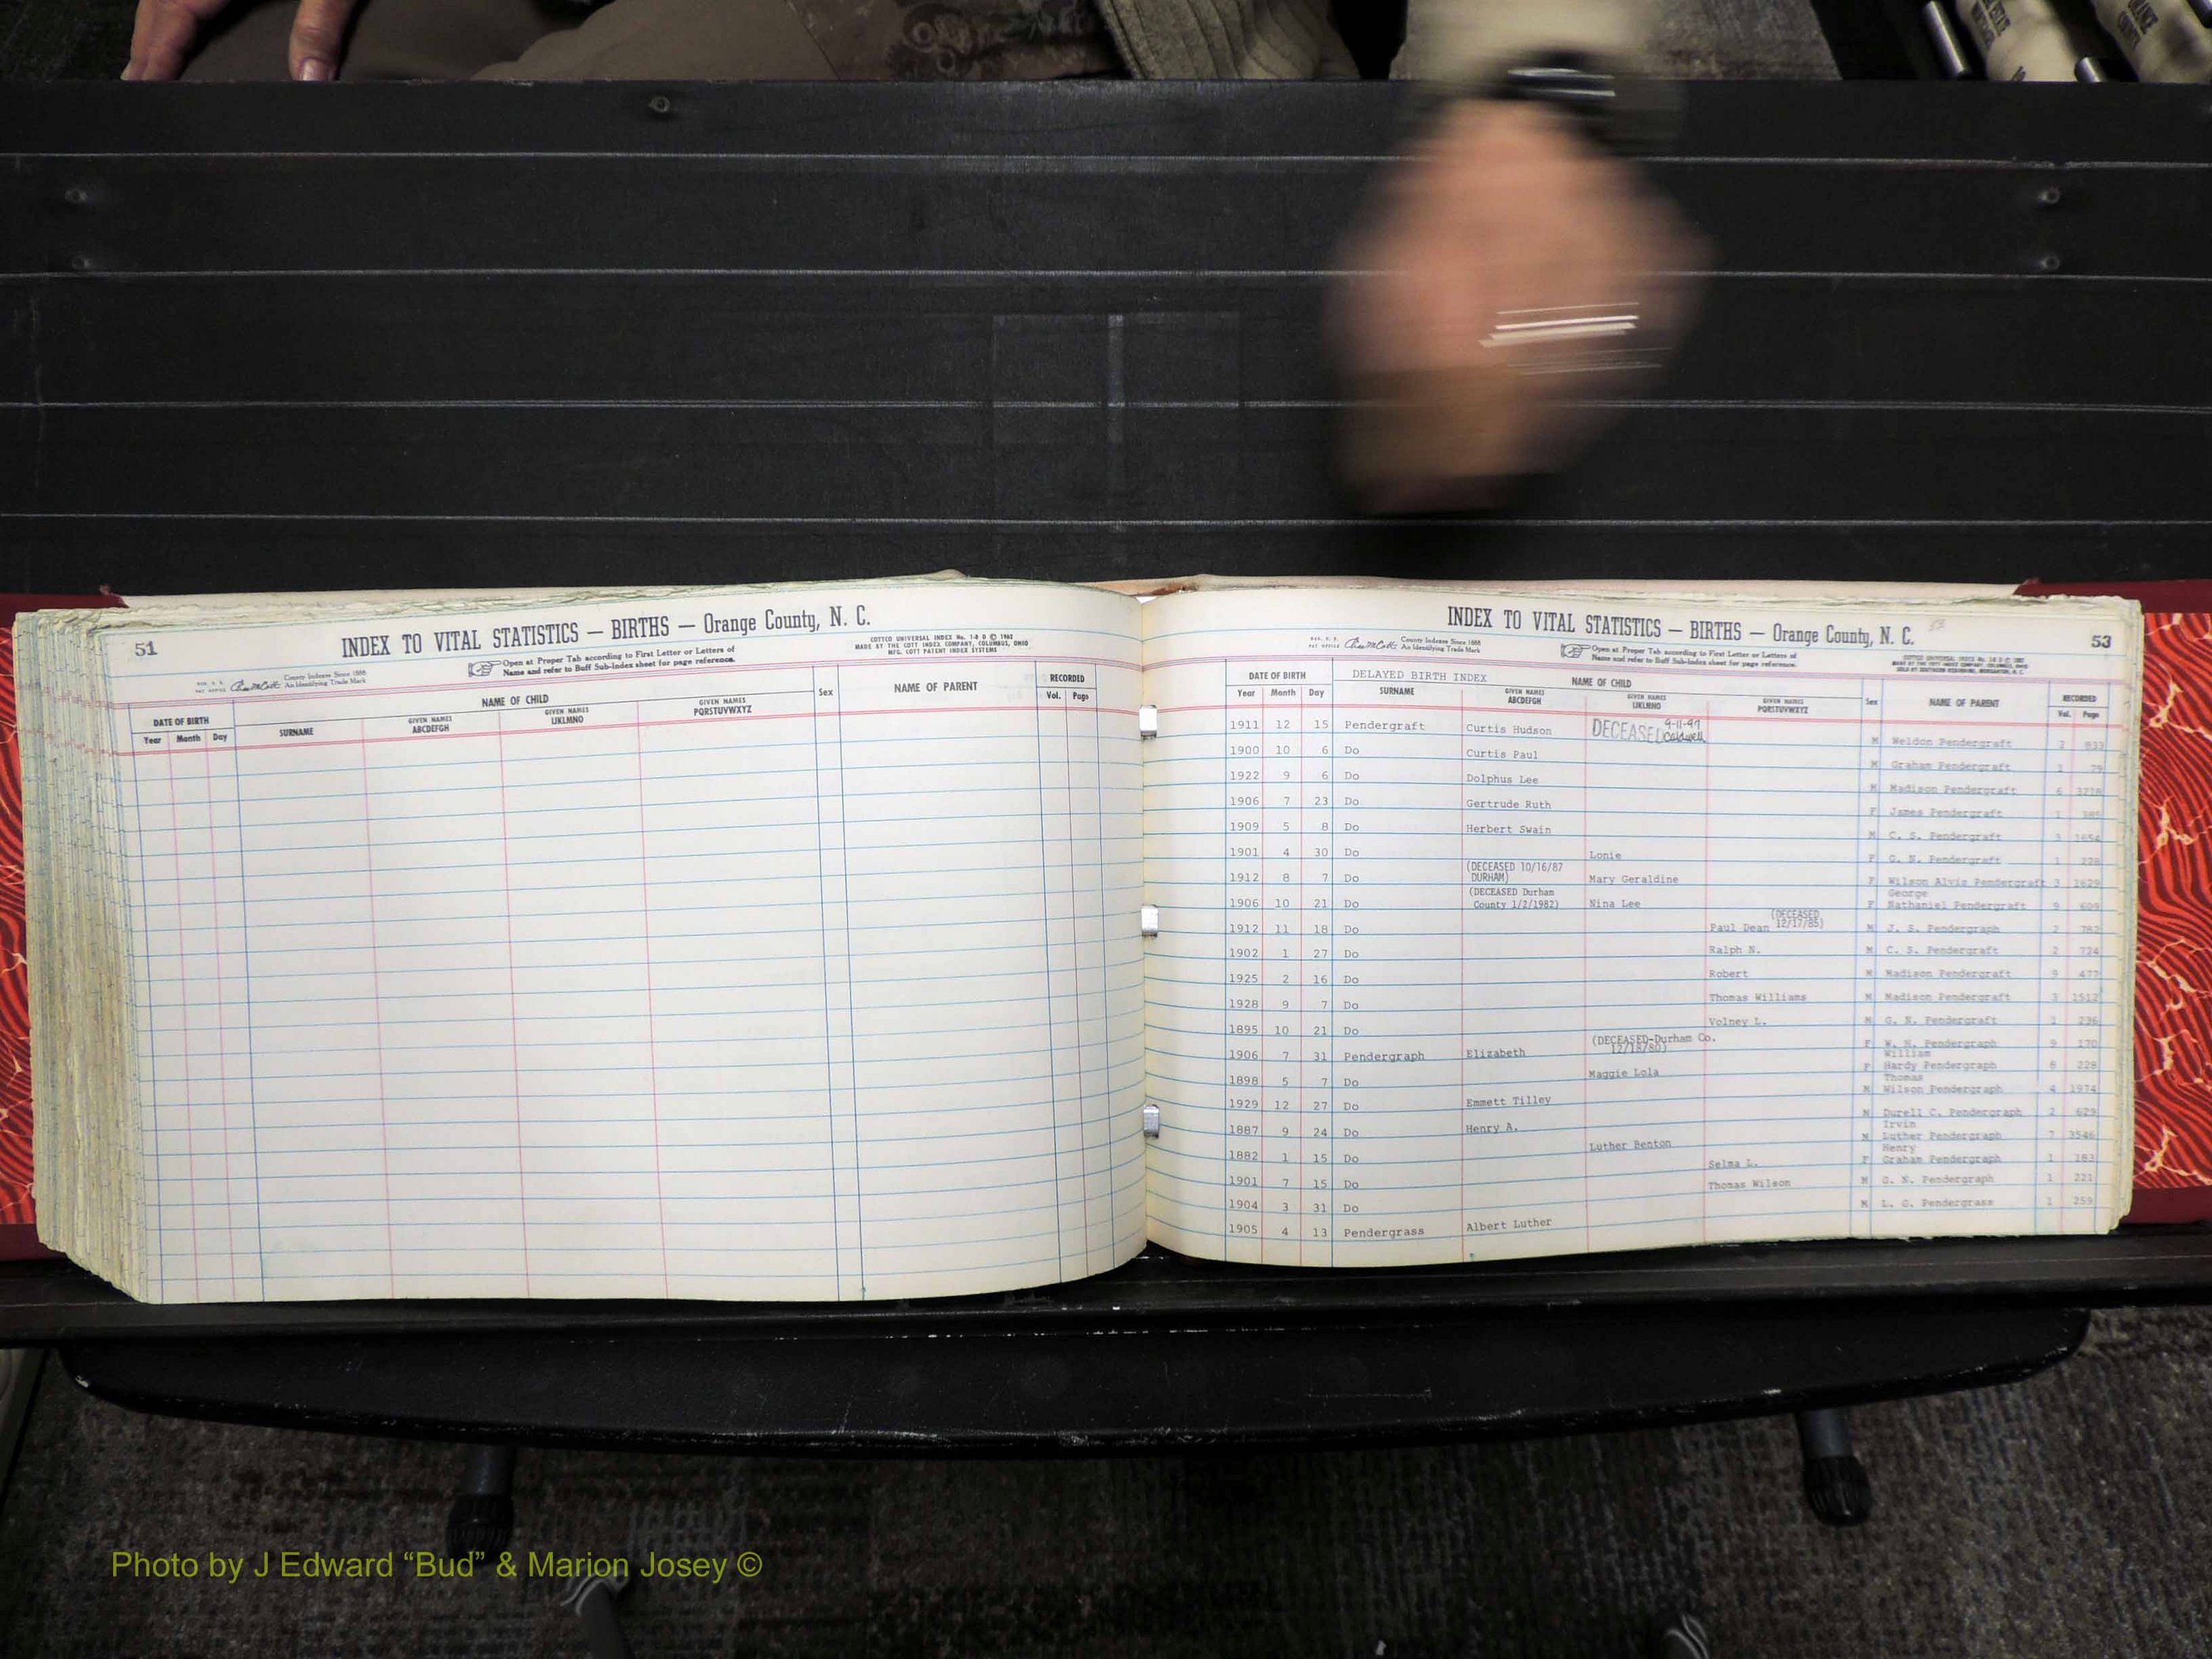 51
INDEX TO VITAL STATISTICS — BIRTHS — Orange County, N. C.
COTTCO UNIVERSAL INDEX No. 1-8 D © 1962
MADE BY THE COTT INDEX COMPANY, COLUMBUS, OHIO
MFG. COTT PATENT INDEX SYSTEMS
County Indexes Since 1888
An Identifying Trade Mark
Open at Proper Tab according to First Letter or Letters of
Name and refer to Buff Sub-Index sheet for page reference.
DATE OF BIRTH NAME OF CHILD Sex NAME OF PARENT RECORDED
Year Month Day SURNAME GIVEN NAMES ABCDEFGH GIVEN NAMES IJKLMNO GIVEN NAMES PQRSTUVWXYZ Vol. Page
INDEX TO VITAL STATISTICS — BIRTHS — Orange County, N. C.
53
County Indexes Since 1888
An Identifying Trade Mark
Open at Proper Tab according to First Letter or Letters of
Name and refer to Buff Sub-Index sheet for page reference.
DATE OF BIRTH DELAYED BIRTH INDEX NAME OF CHILD Sex NAME OF PARENT RECORDED
Year Month Day SURNAME GIVEN NAMES ABCDEFGH GIVEN NAMES IJKLMNO GIVEN NAMES PQRSTUVWXYZ Vol. Page
1911 12 15 Pendergraft Curtis Hudson DECEASED 9-11-97 Caldwell M Weldon Pendergraft 2 833
1900 10 6 Do Curtis Paul M Graham Pendergraft 79
1922 9 6 Do Dolphus Lee M Madison Pendergraft 6
1906 7 23 Do Gertrude Ruth F James Pendergraft 1
1909 5 8 Do Herbert Swain M C. S. Pendergraft 3 1654
1901 4 30 Do Lonie F G. N. Pendergraft 1 228
1912 8 7 Do (DECEASED 10/16/87 DURHAM) Mary Geraldine F Wilson Alvis Pendergraft 3 1629
1906 10 21 Do (DECEASED Durham County 1/2/1982) Nina Lee F George Nathaniel Pendergraft 9 609
1912 11 18 Do Paul Dean (DECEASED 12/17/85) M J. S. Pendergraph 2 782
1902 1 27 Do Ralph N. M C. S. Pendergraft 2 724
1925 2 16 Do Robert M Madison Pendergraft 9 477
1928 9 7 Do Thomas Williams M Madison Pendergraft 3 1512
1895 10 21 Do Volney L. M G. N. Pendergraft 1 236
1906 7 31 Pendergraph Elizabeth (DECEASED-Durham Co. 12/18/80) F W. H. Pendergraph 9 170
1898 5 7 Do Maggie Lola F William Hardy Pendergraph 8 228
1929 12 27 Do Emmett Tilley M Thomas Wilson Pendergraph 4 1974
1887 9 24 Do Henry A. M Durell C. Pendergraph 2 629
1882 1 15 Do Luther Benton M Irvin Luther Pendergraph 7 3546
1901 7 15 Do Selma L. F Henry Graham Pendergraph 1 183
1904 3 31 Do Thomas Wilson M G. N. Pendergraph 1 221
1905 4 13 Pendergrass Albert Luther M L. G. Pendergrass 1 259
Photo by J Edward “Bud” & Marion Josey ©